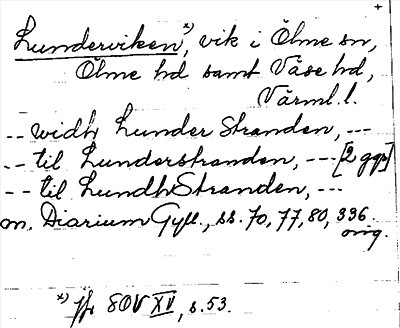 +
Lunderviken*), vik i Ölme sn,
Ölme hd samt Väse hd,
Värml. l.
-- widh Lunder Stranden, ---
-- til Lunderstranden, --- [2 ggr]
-- til LundhStranden, ---
m. Diarium Gyll., ss. 70, 77, 80, 336.
orig.
*) jfr SOV XV, s. 53.